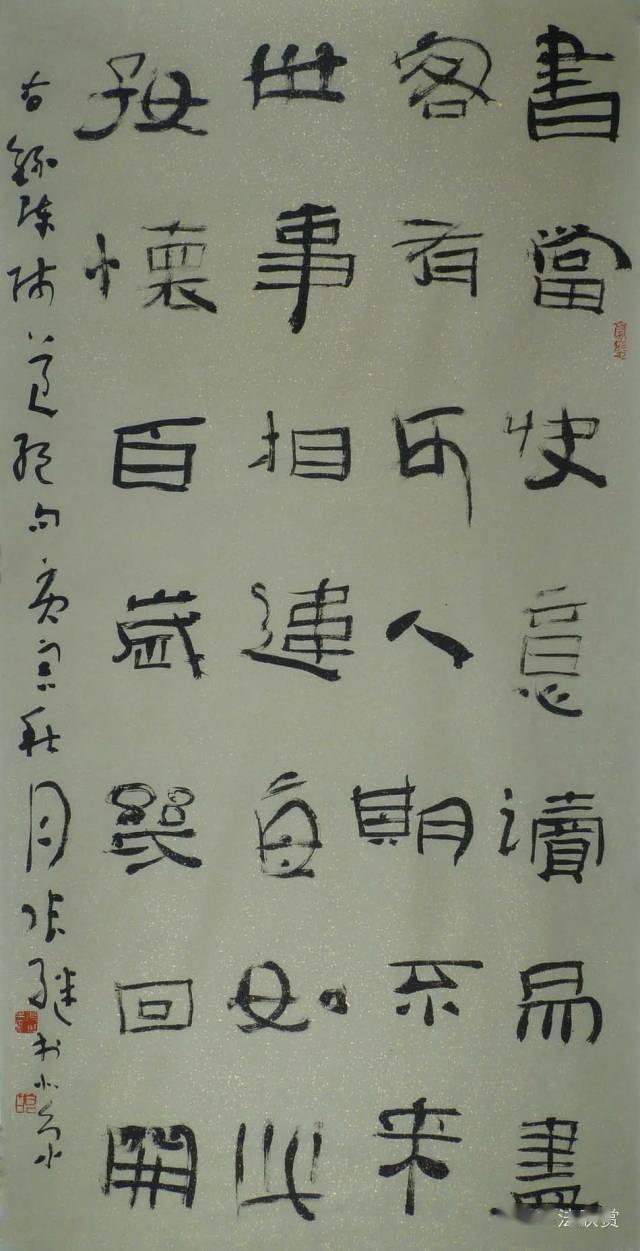 書當快意讀易盡
客有可人期不來
世事相違每如此
好懷百歲幾回開
右錄陳師道絕句庚寅秋月張繼书北京